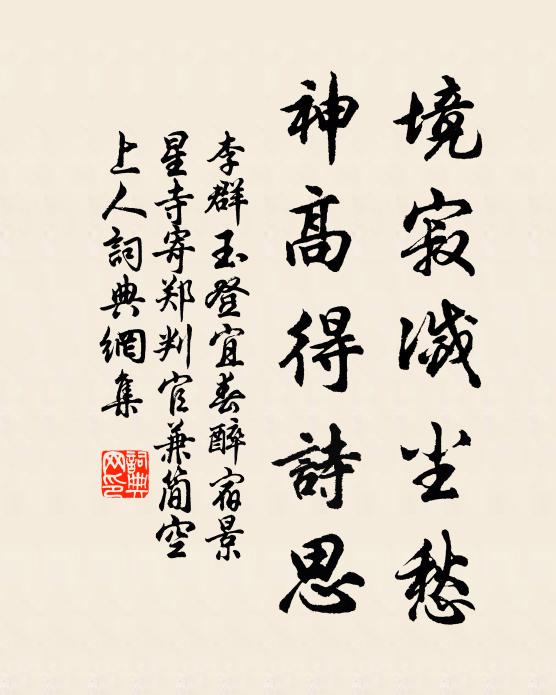 境寂滅尘愁
神高得詩思
李群玉登宜春醉宿景
星寺寄郑判官兼简空
上人詞典網集
詞典
网印